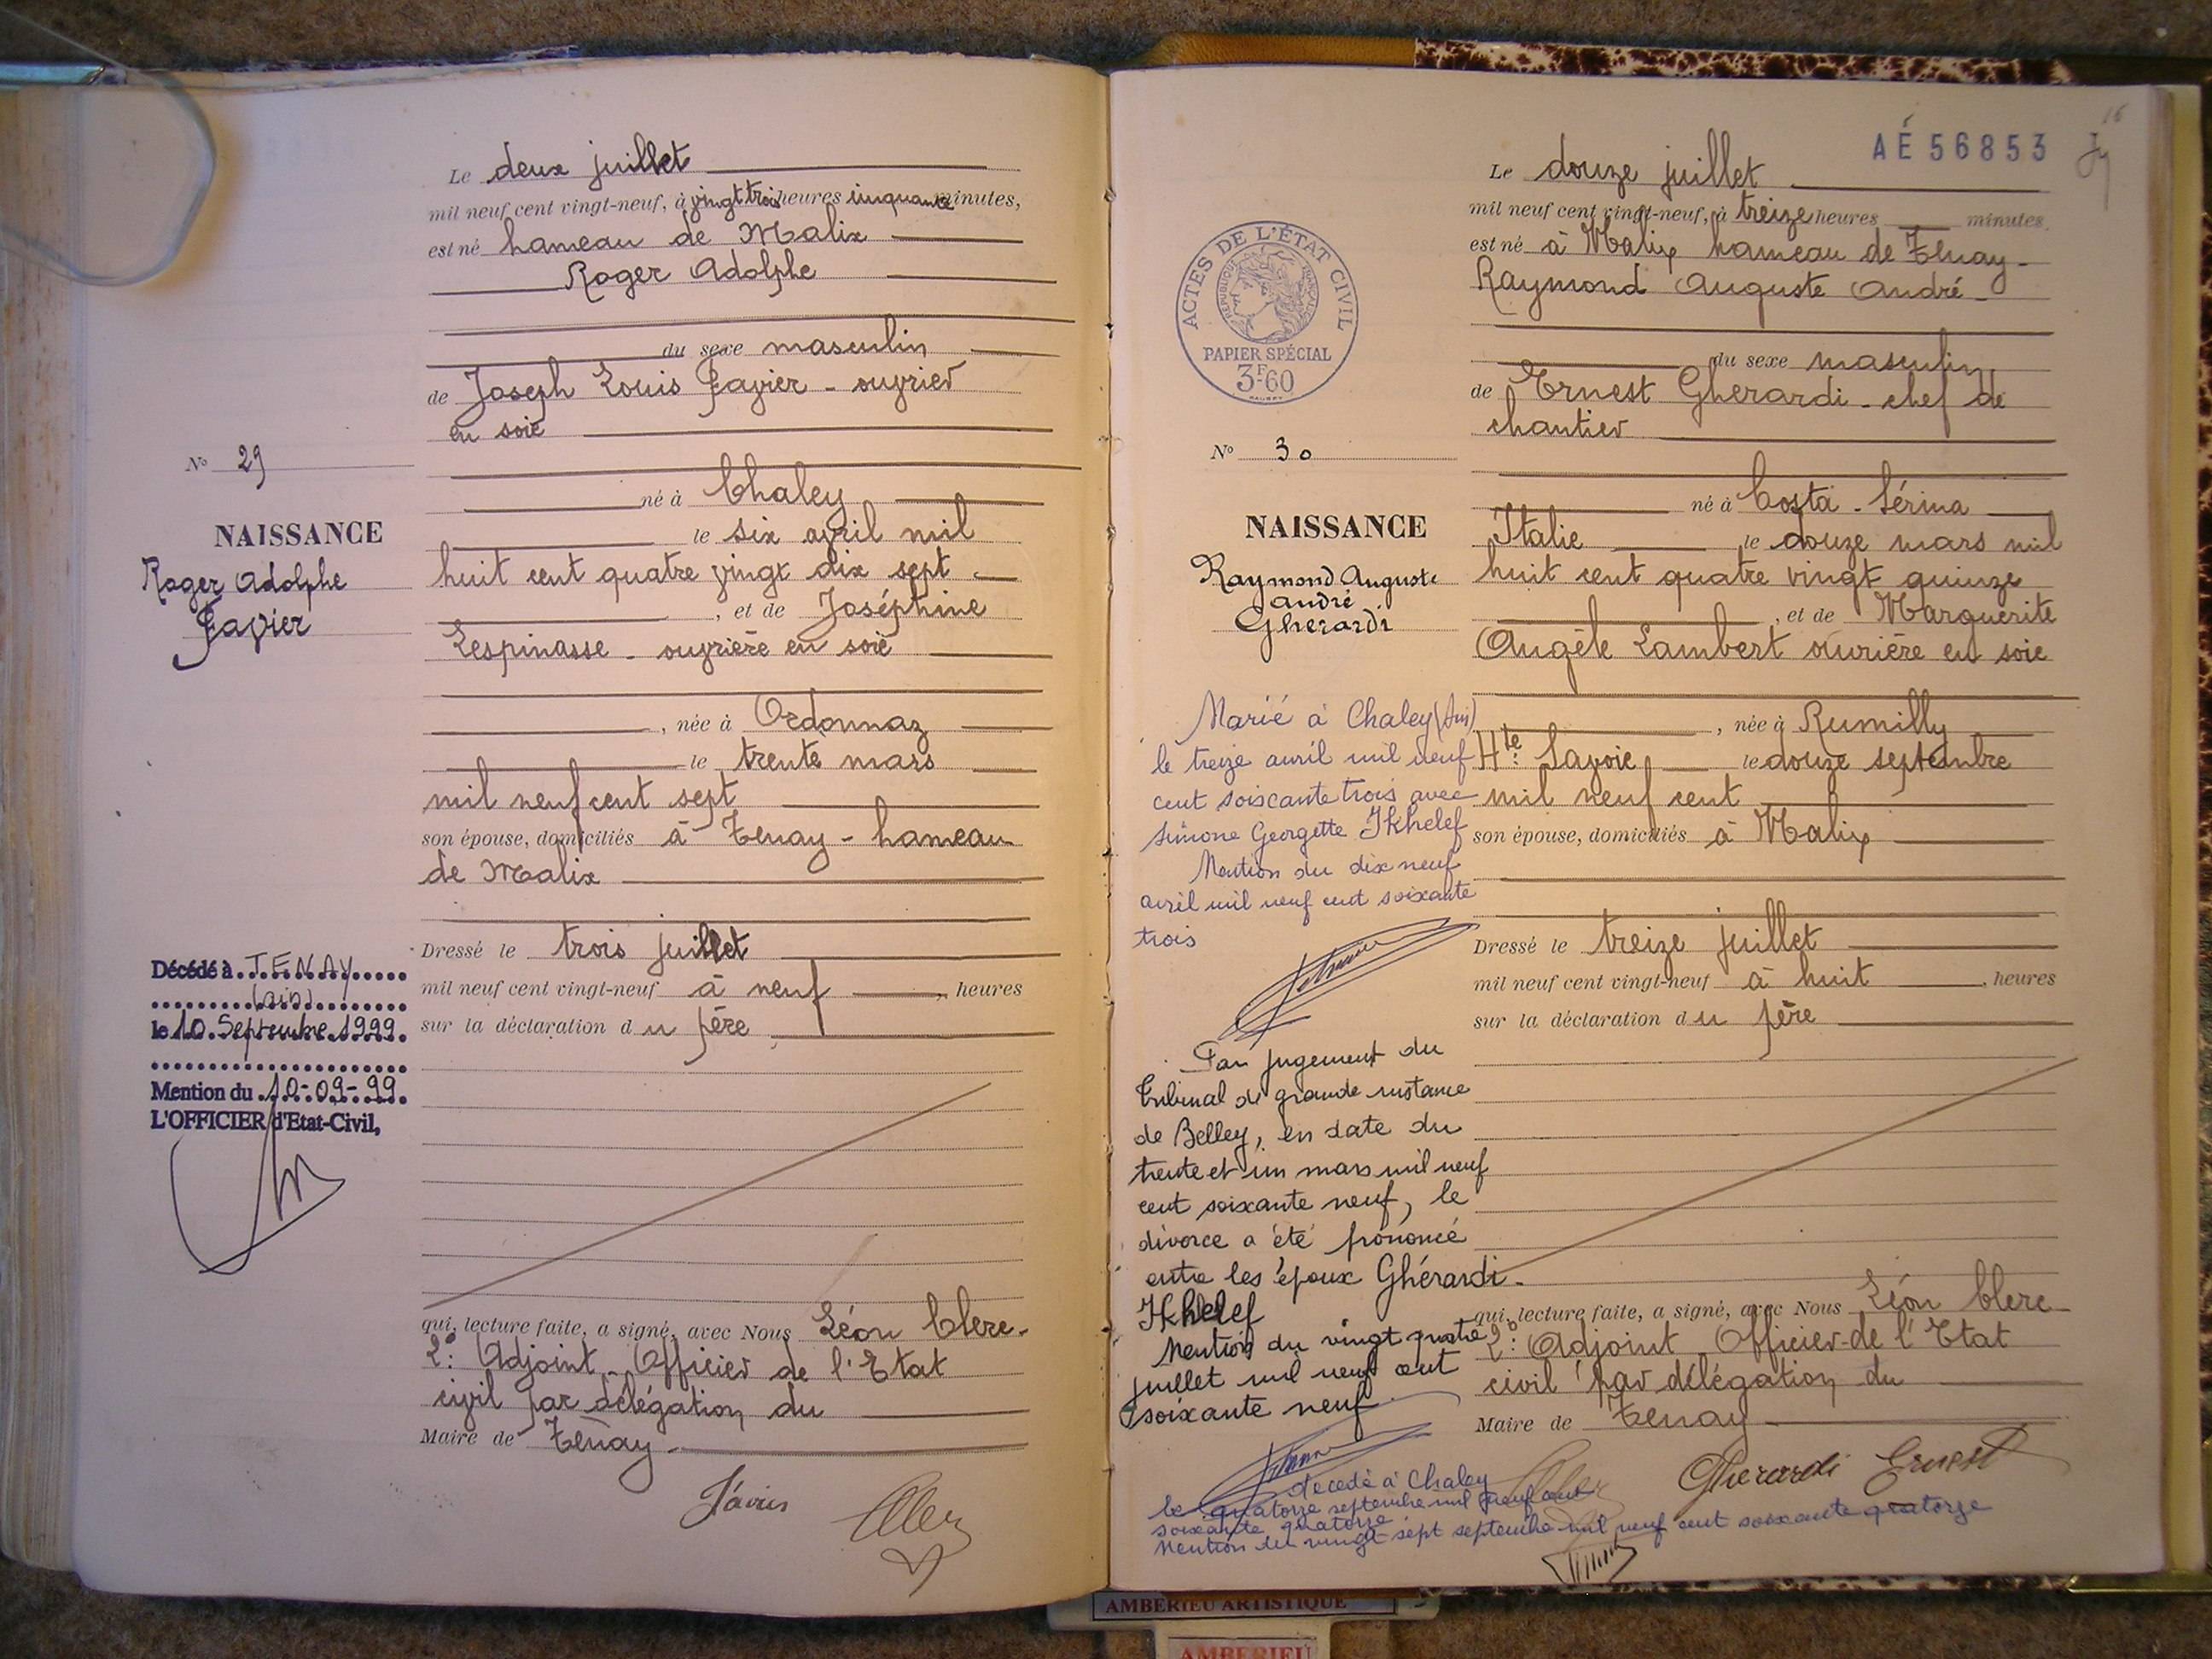 Le deux juillet
mil neuf cent vingt-neuf, à vingt trois heures cinquante minutes,
est né hameau de Malix
Roger Adolphe
du sexe masculin
de Joseph Louis Favier - ouvrier
en soie
né à Chaley
le six avril mil
huit cent quatre vingt dix sept
, et de Joséphine
Lespinasse - ouvrière en soie
, née à Ordonnaz
le trente mars
mil neuf cent sept
son épouse, domiciliés à Tenay - hameau
de Malix
Dressé le trois juillet
mil neuf cent vingt-neuf à neuf , heures
sur la déclaration du père
qui, lecture faite, a signé, avec Nous Léon Clerc
2e Adjoint Officier de l'Etat
civil par délégation du
Maire de Tenay
Favier
No 29
NAISSANCE
Roger Adolphe
Favier
Décédé à TENAY
(ain)
le 10 Septembre 1999
Mention du 10-09-99
L'OFFICIER d'Etat-Civil,
AÉ 56853
16
Le douze juillet
mil neuf cent vingt-neuf, à treize heures minutes
est né à Malix hameau de Tenay
Raymond Auguste André
du sexe masculin
de Ernest Gherardi - chef de
chantier
né à Costa - Sérina
Italie le douze mars mil
huit cent quatre vingt quinze
, et de Marguerite
Angèle Lambert ouvrière en soie
, née à Rumilly
Hte Savoie le douze septembre
mil neuf cent
son épouse, domiciliés à Malix
Dressé le treize juillet
mil neuf cent vingt-neuf à huit , heures
sur la déclaration du père
qui, lecture faite, a signé, avec Nous Léon Clerc
2e Adjoint Officier de l'Etat
civil par délégation du
Maire de Tenay
Gherardi Ernest
ACTES DE L'ÉTAT CIVIL
RÉPUBLIQUE FRANÇAISE
PAPIER SPÉCIAL
3F60
No 30
NAISSANCE
Raymond Auguste
André
Gherardi
Marié à Chaley (Ain)
le treize avril mil neuf
cent soixante trois avec
Simone Georgette Ikhelef
Mention du dix neuf
avril mil neuf cent soixante
trois
Par jugement du
Tribunal de grande instance
de Belley, en date du
trente et un mars mil neuf
cent soixante neuf, le
divorce a été prononcé
entre les époux Ghérardi-
Ikhelef
Mention du vingt quatre
juillet mil neuf cent
soixante neuf
décédé à Chaley
le quatorze septembre mil neuf cent
soixante quatorze
Mention du vingt-sept septembre mil neuf cent soixante quatorze
AMBERIEU ARTISTIQUE
AMBERIEU